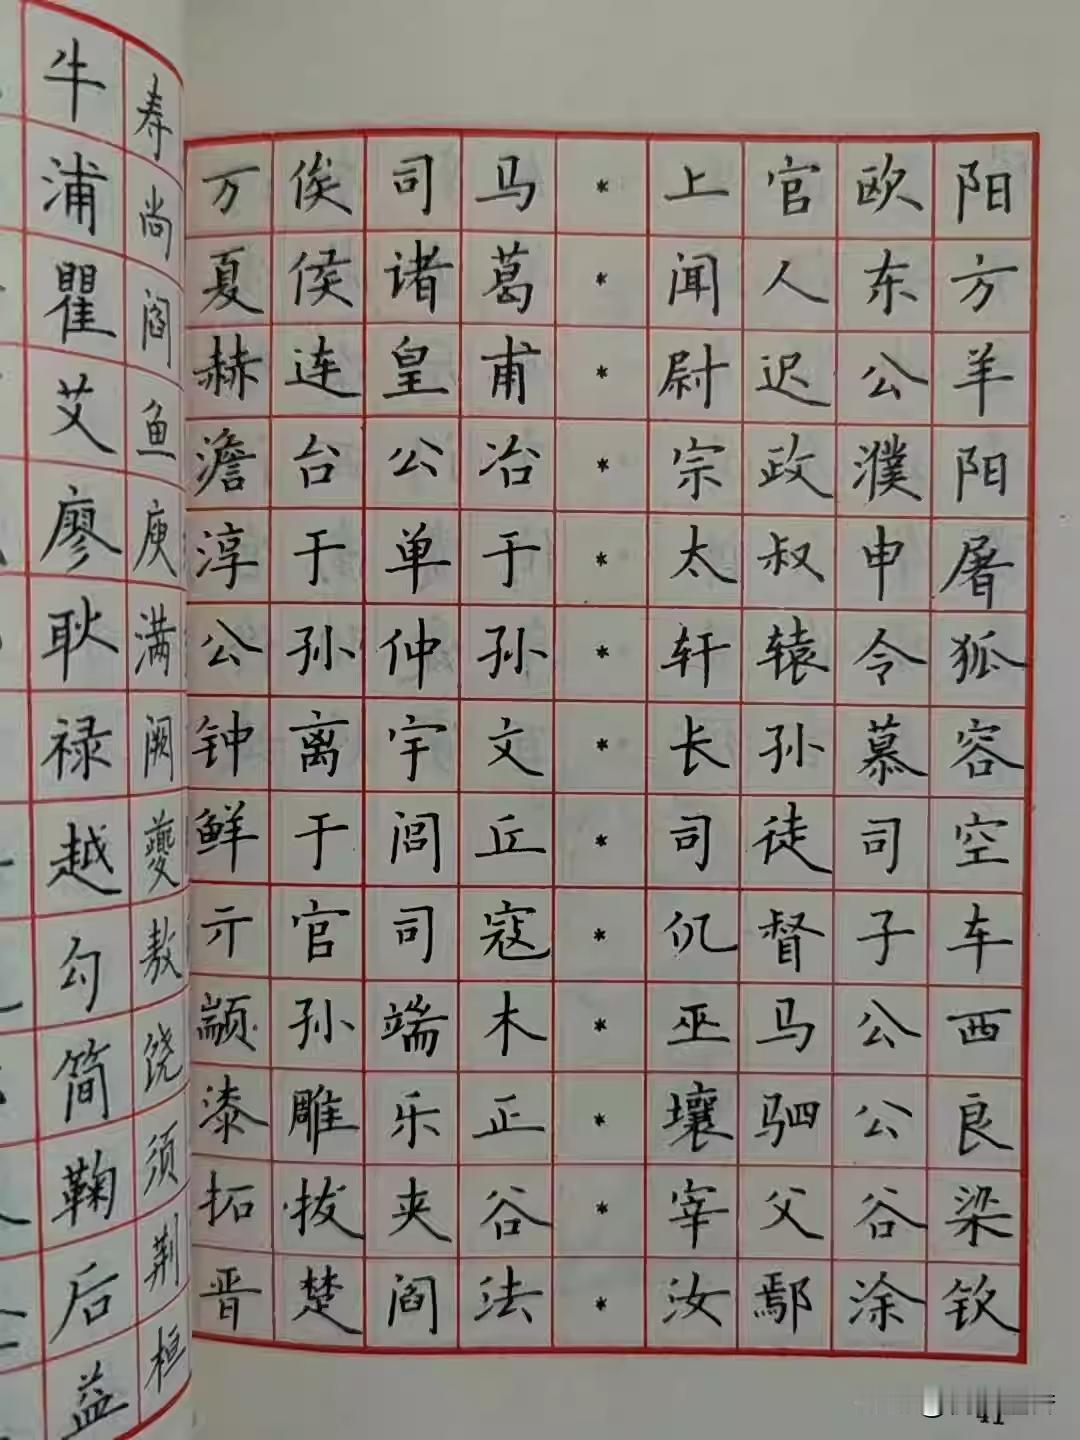 牛 寿
浦 尚
瞿 阎
艾 鱼
廖 庾
耿 满
禄 阙
越 夔
勾 敖
简 饶
鞠 须
后 荆
益 桓
万俟司马*上官欧阳
夏侯诸葛*闻人东方
赫连皇甫*尉迟公羊
澹台公冶*宗政濮阳
淳于单于*太叔申屠
公孙仲孙*轩辕令狐
钟离宇文*长孙慕容
鲜于闾丘*司徒司空
亓官司寇*仉督子车
颛孙端木*巫马公西
漆雕乐正*壤驷公良
拓拔夹谷*宰父谷梁
晋楚阎法*汝鄢涂钦
41